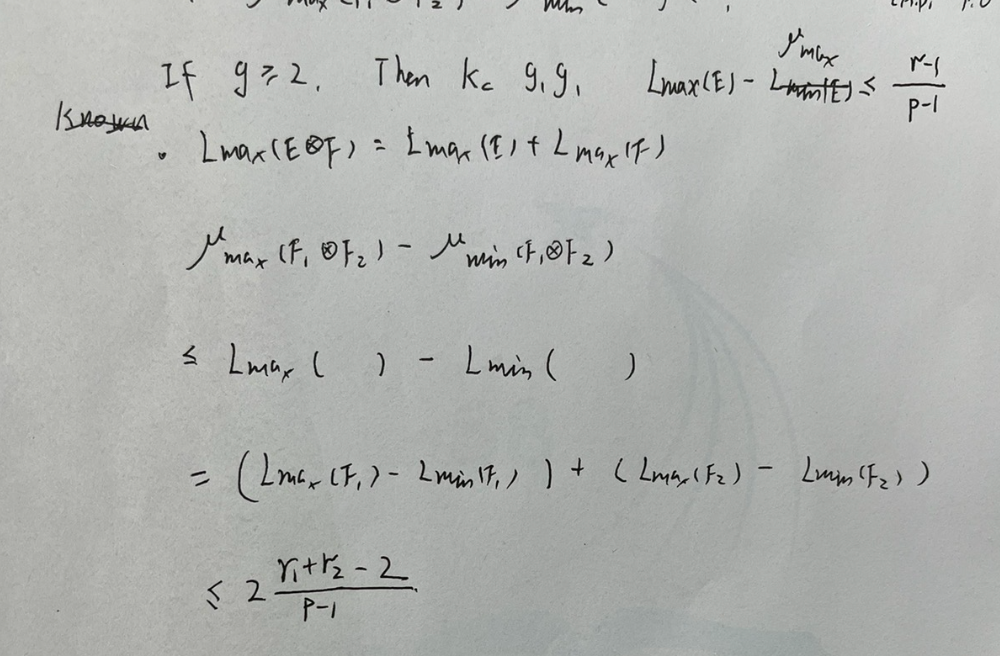 If g ≥ 2, Then K_C g.g, L_max(E) - μ_max ≤ (r-1)/(p-1)
• L_max(E⊗F) = L_max(E) + L_max(F)
μ_max(F_1⊗F_2) - μ_min(F_1⊗F_2)
≤ L_max( ) - L_min( )
= (L_max(F_1) - L_min(F_1)) + (L_max(F_2) - L_min(F_2))
≤ 2 (r_1+r_2-2)/(p-1)